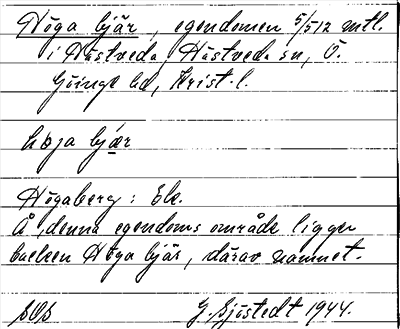 Höga bjär, egendomen 5/512 mtl.
i Hästveda, Hästveda sn, Ö.
Göinge hd, Krist. l.
höja bjær
Högaberg: Ek.
Å denna egendoms område ligger
backen Höga bjär, därav namnet.
G. Sjöstedt 1944.